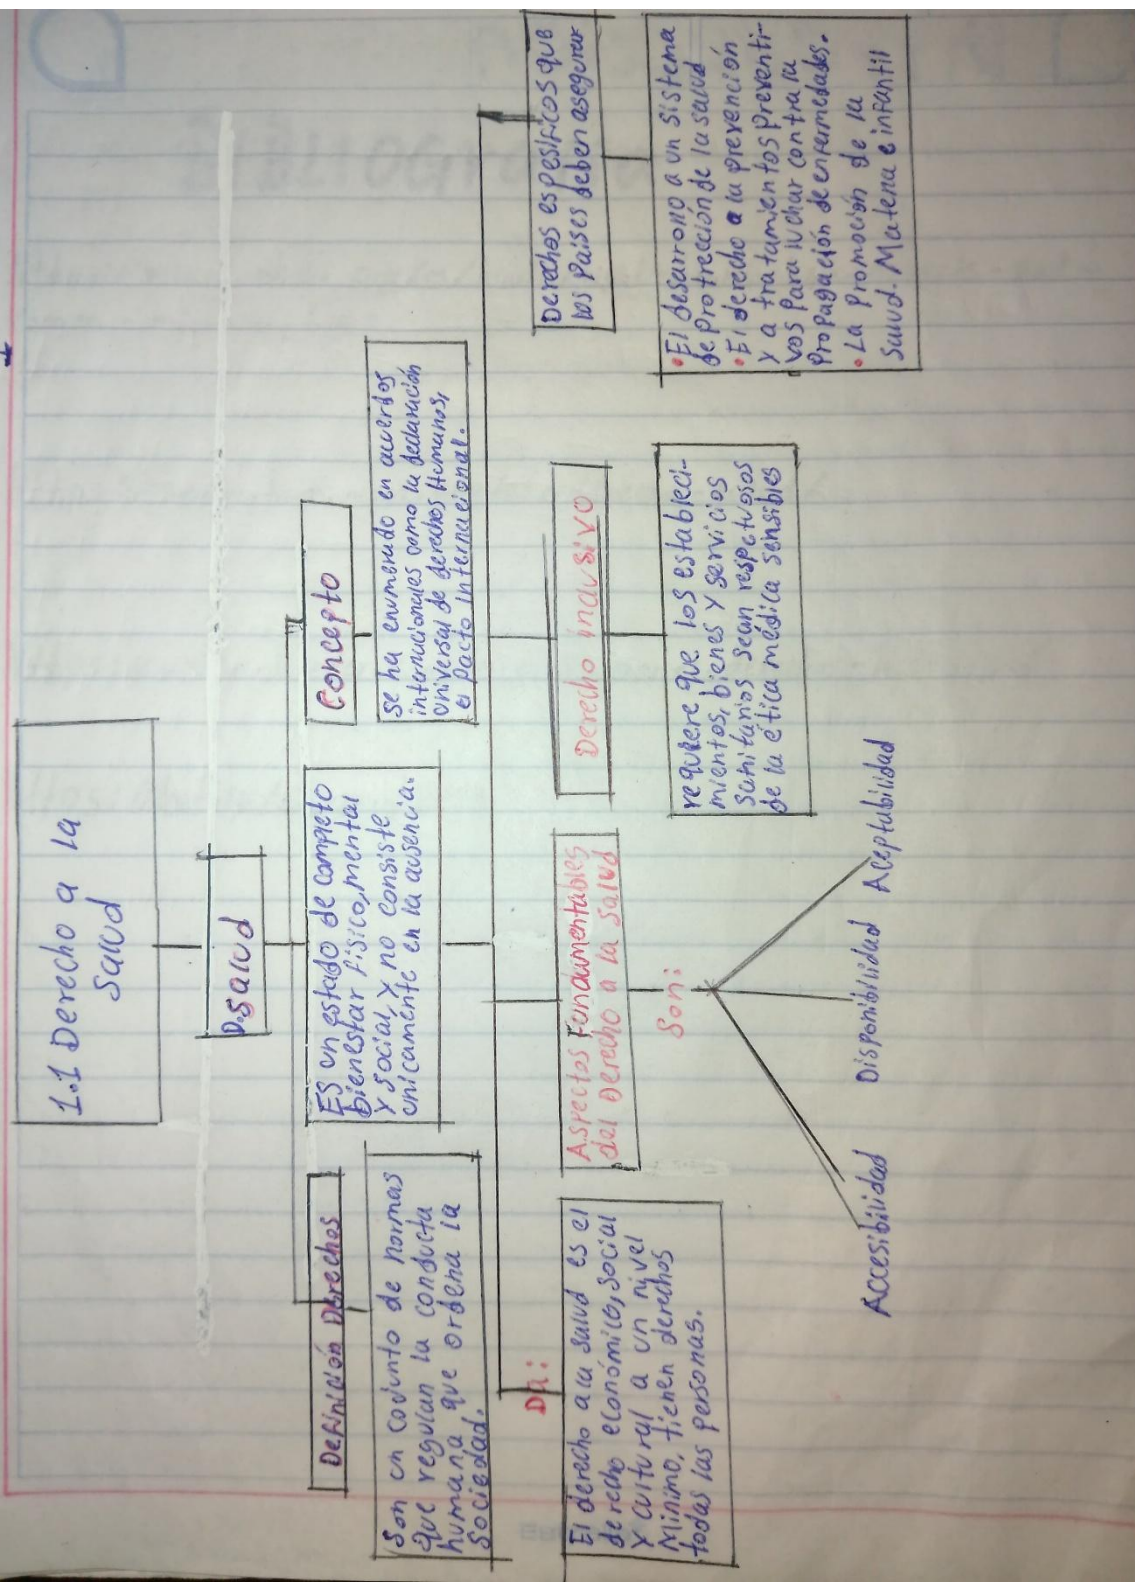 1.1 Derecho a la
Salud
D.salud
Definición Derechos
Son un conjunto de normas
que regulan la conducta
humana que ordena la
Sociedad.
ES un estado de completo
bienestar físico, mental
y social, y no consiste
unicamente en la ausencia.
Concepto
Se ha enumerado en acuerdos
internacionales como la declaración
universal de derechos Humanos,
el Pacto Internacional.
Da:
El derecho a la salud es el
derecho económico, social
y cultural a un nivel
Minimo, tienen derechos
todas las personas.
Aspectos Fundamentables
del Derecho a la Salud
Son:
Accesibilidad
Disponibilidad
Aceptabilidad
Derecho inclusivo
requiere que los estableci-
mientos, bienes y servicios
Sanitarios sean respetuosos
de la ética médica sensibles
Derechos espesificos que
los Países deben asegurar
• El desarrollo a un sistema
de protrección de la salud
• El derecho a la prevención
y a tratamientos preventi-
vos para luchar contra la
Propagación de enfermedades.
• La promoción de la
Salud. Matena e infantil